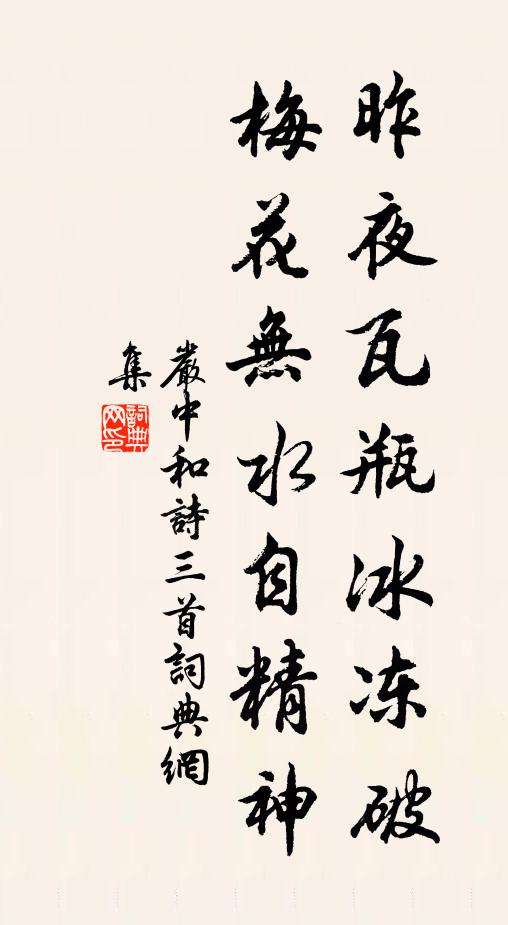 昨夜瓦瓶冰冻破
梅花無水自精神
嚴中和詩三首詞典網
集
詞典
网印